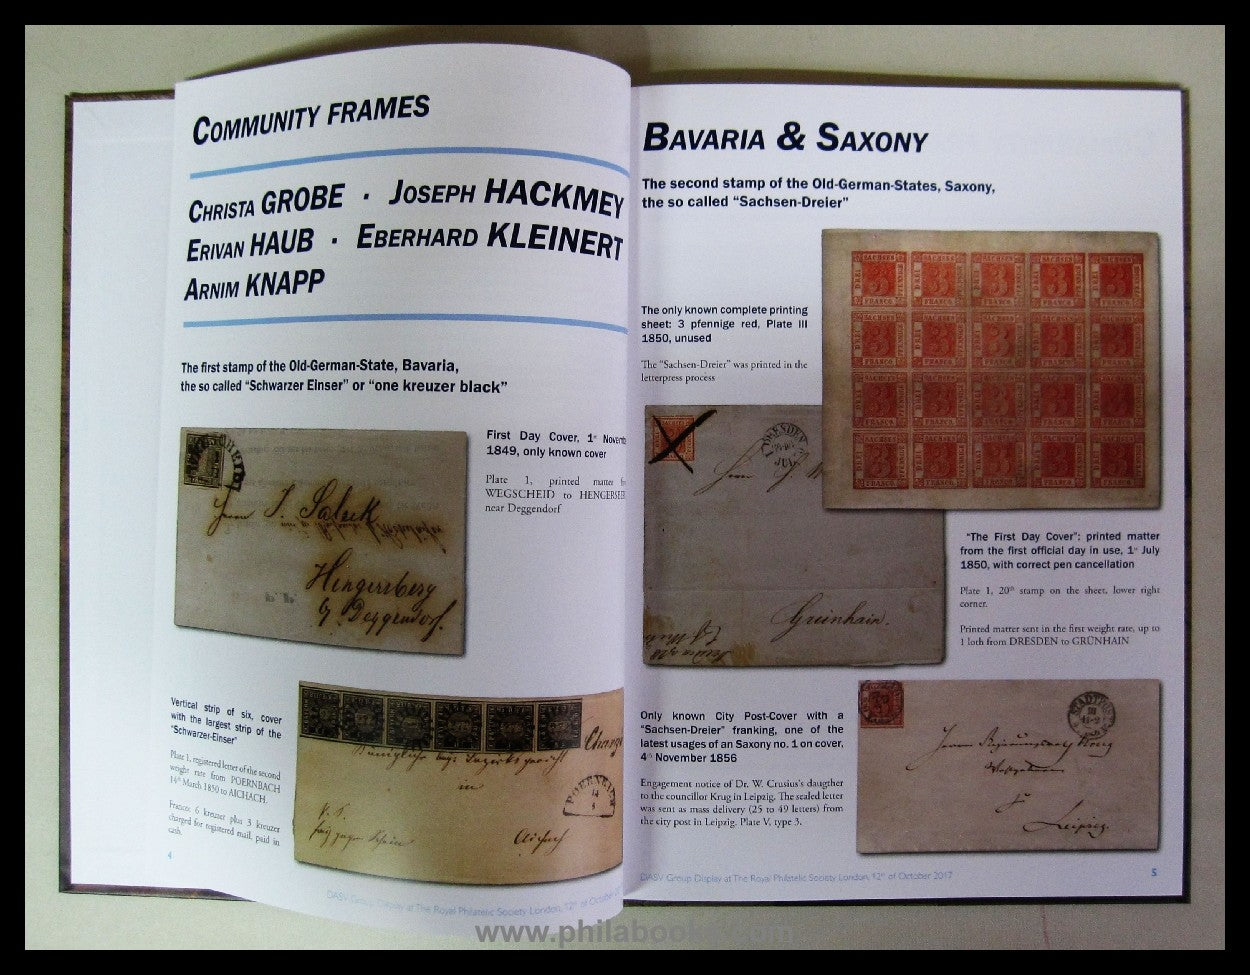 COMMUNITY FRAMES
CHRISTA GROBE · JOSEPH HACKMEY
ERIVAN HAUB · EBERHARD KLEINERT
ARNIM KNAPP
The first stamp of the Old-German-State, Bavaria,
the so called "Schwarzer Einser" or "one kreuzer black"
First Day Cover, 1st Novem
1849, only known cover
Plate 1, printed matter
WEGSCHEID to HENGERS
near Deggendorf
Hengersberg
Deggendorf.
Vertical strip of six, cover
with the largest strip of the
"Schwarzer-Einser"
Plate 1, registered letter of the second
weight rate from POERNBACH
14th March 1850 to AICHACH.
Francos: 6 kreuzer plus 3 kreuzer
charged for registered mail, paid in
cash.
Chargé
in
Aichach
4
DASV Group Display at The Royal Philatelic Society London, 12th of October
BAVARIA & SAXONY
The second stamp of the Old-German-States, Saxony,
the so called "Sachsen-Dreier"
The only known complete printing
sheet: 3 pfennige red, Plate III
1850, unused
The "Sachsen-Dreier" was printed in the
letterpress process
SACHSEN
DREI
3
PFENNIGE
FRANCO
DRESDEN
JUL
Grünhain.
"The First Day Cover"; printed matter
from the first official day in use, 1st July
1850, with correct pen cancellation
Plate 1, 20th stamp on the sheet, lower right
corner.
Printed matter sent in the first weight rate, up to
1 loth from DRESDEN to GRÜNHAIN
Only known City Post-Cover with a
"Sachsen-Dreier" franking, one of the
latest usages of an Saxony no. 1 on cover,
4th November 1856
Engagement notice of Dr. W. Crusius's daugther
to the councillor Krug in Leipzig. The sealed letter
was sent as mass delivery (25 to 49 letters) from
the city post in Leipzig. Plate V, type 3.
Leipzig.
DASV Group Display at The Royal Philatelic Society London, 12th of October 2017
5
www.philabooks.com